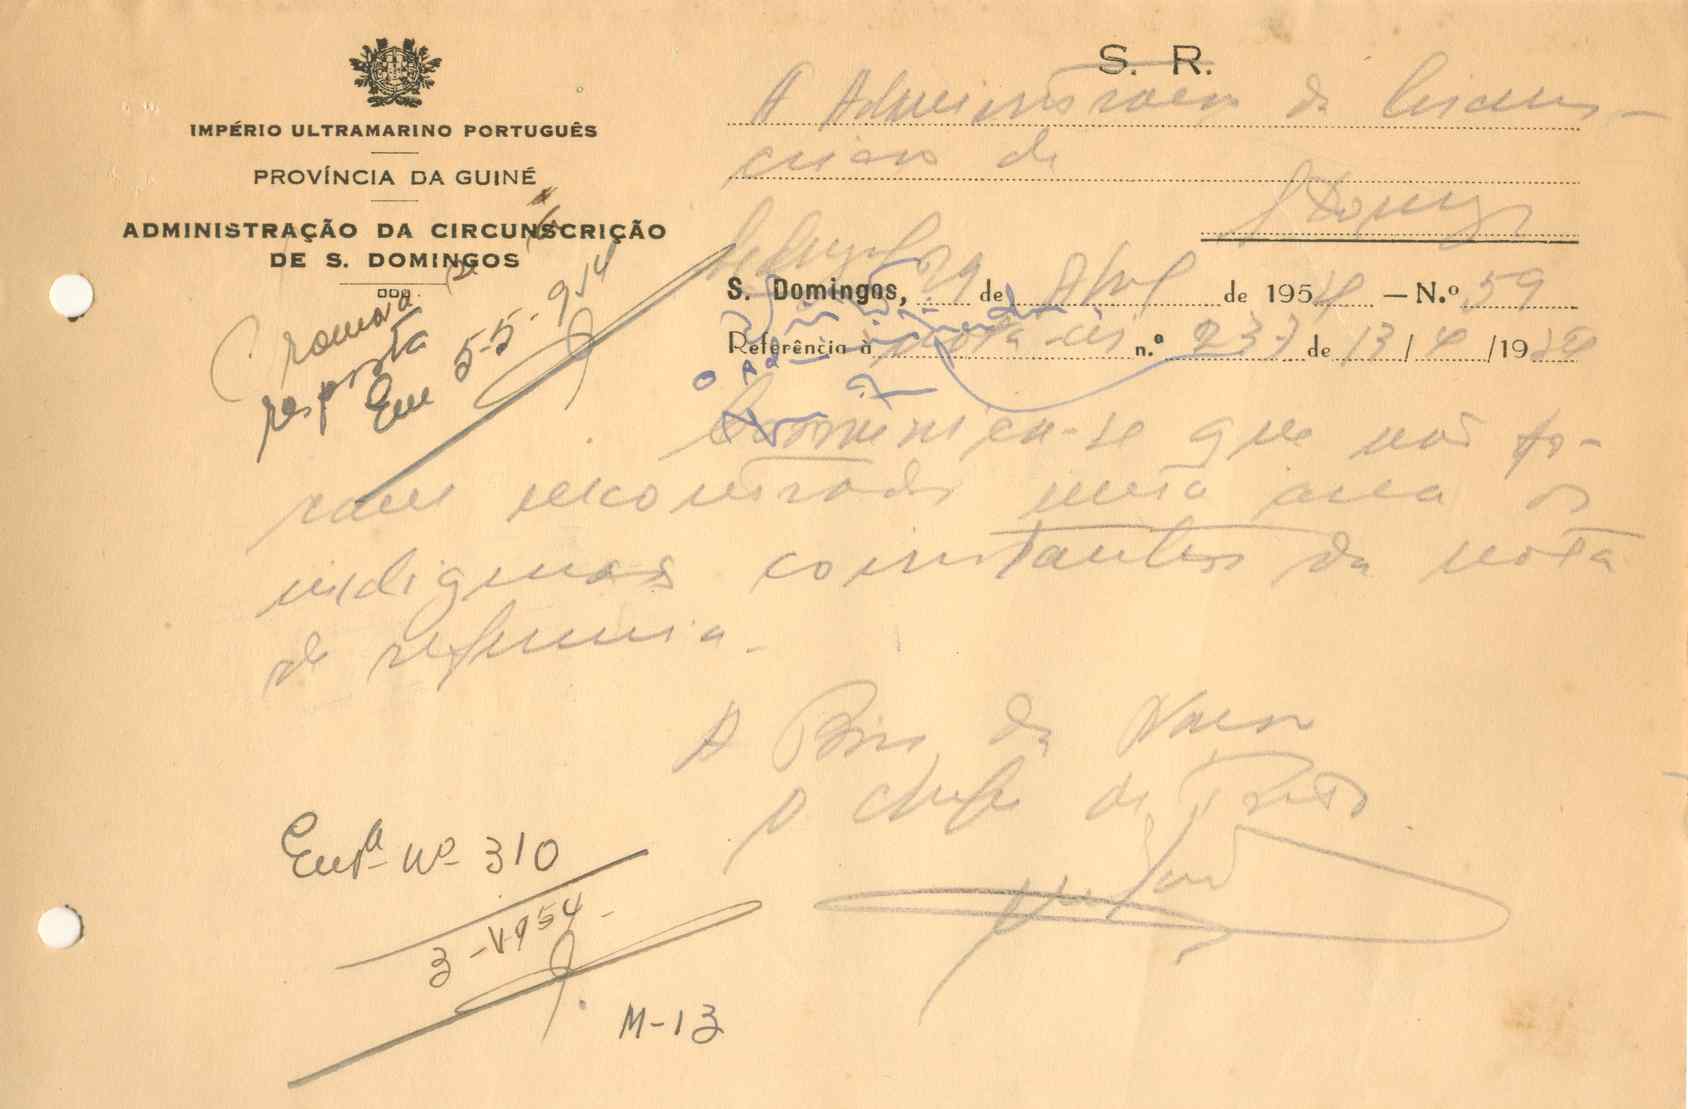 IMPÉRIO ULTRAMARINO PORTUGUÊS
PROVÍNCIA DA GUINÉ
ADMINISTRAÇÃO DA CIRCUNSCRIÇÃO
DE S. DOMINGOS
S. R.
A Administração da Circuns-
crição de
S. Domingos
S. Domingos, 29 de Abril de 1954 — N.º 59
Referência à nota n.º 233 de 13/4/1954
Comunica-se que não fo-
ram encontrados nesta area os
indigenas constantes da nota
de referencia.
A Bem da Nação
O Chefe de Posto
resposta
Em 5-5-954
Entª Nº 310
3-V-954
M-13